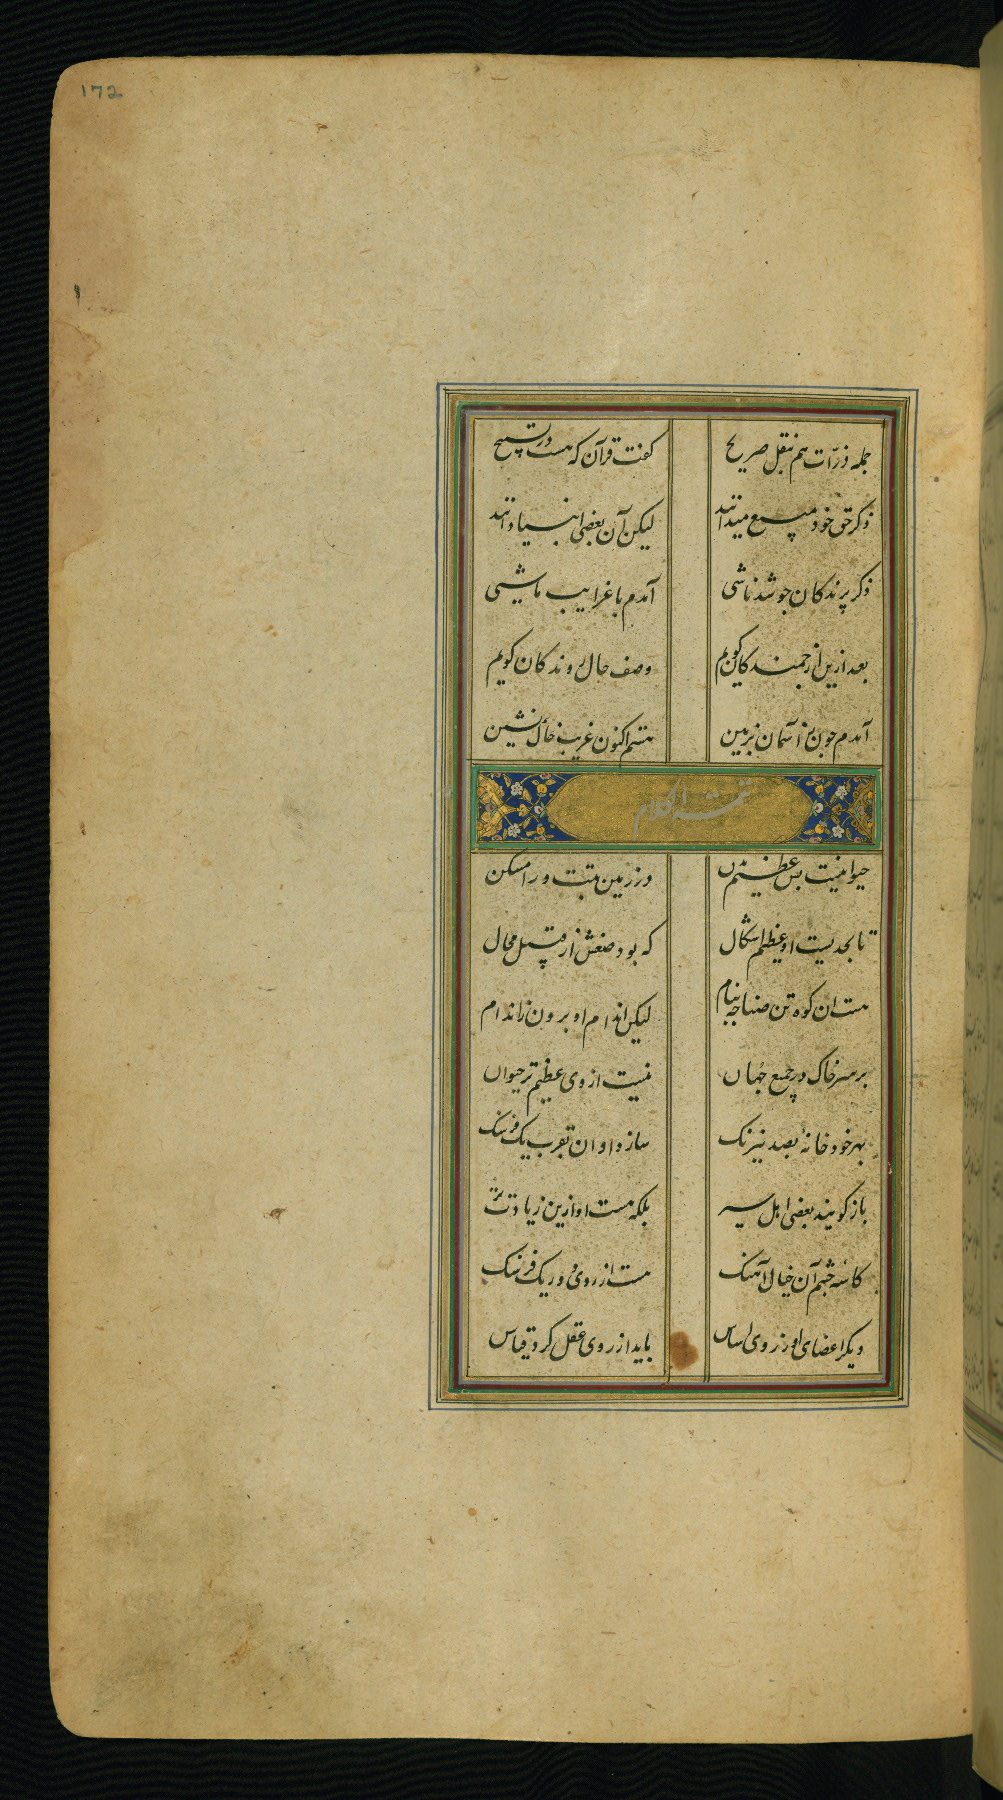 172
جمله ذرّات هم بنقل صریح
کفت قرآن که هست در تسبیح
ذکر حق خود همیشه میدانند
لیکن آن بعضی انبیا دانند
ذکر پرندکان جو شد ناشی
آمدم با غرایب ماشی
بعد ازین از جمندکان کویم
وصف حال روندکان کویم
آمدم جون من از آسمان بزمین
هستم اکنون غریب خاک نشین
تتمه الکلام
حیوانیست بس عظیم بدن
در زمین تبت ورا مسکن
تا بحدیست او عظیم اشکال
که بود صنعش از قبیل محال
هست ان کوه تن صناجه بنام
لیکن اندام او برون ز اندام
بر سر خاک در جمیع جهان
نیست از وی عظیم تر حیوان
بهر خود خانهٔ بصد نیرنک
سازد او ان بقرب یک فرسنک
باز کویند بعضی اهل سیر
بلکه هست او ازین زیادت تر
کاسه جشم آن خیال آهنک
هست از روی دور یک فرسنک
دیکر اعضای او ز روی اساس
باید از روی عقل کرد قیاس